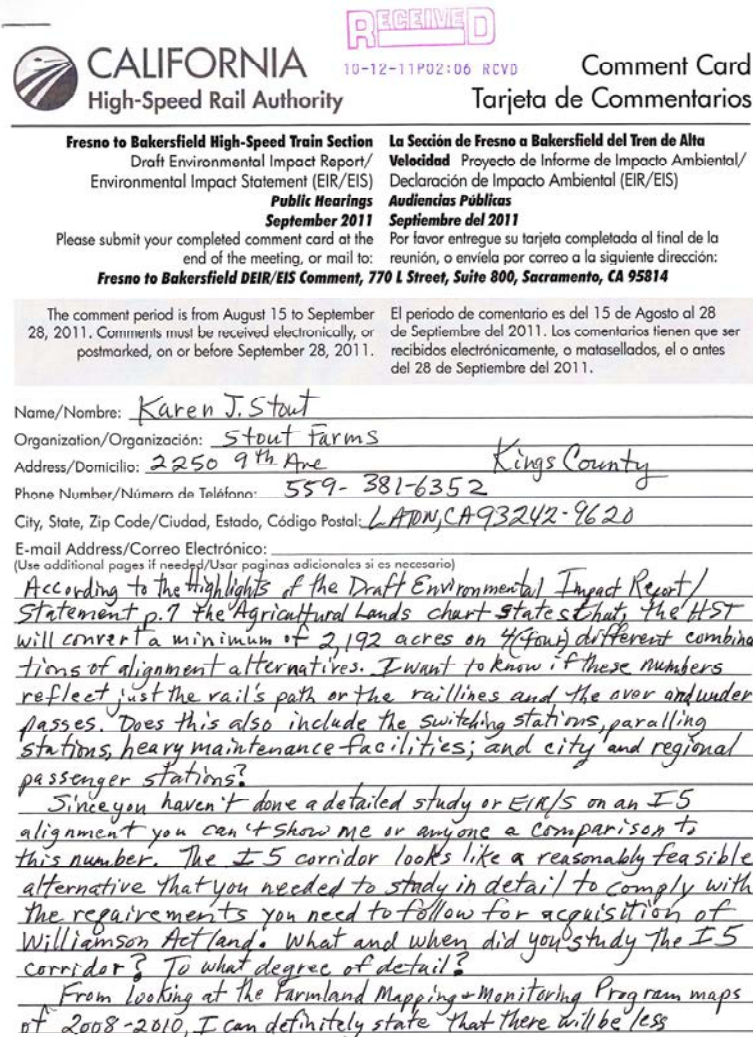 RECEIVED
10-12-11P02:06 RCVD
CALIFORNIA
High-Speed Rail Authority
Comment Card
Tarjeta de Comentarios
Fresno to Bakersfield High-Speed Train Section
Draft Environmental Impact Report/
Environmental Impact Statement (EIR/EIS)
Public Hearings
September 2011
Please submit your completed comment card at the
end of the meeting, or mail to:
La Sección de Fresno a Bakersfield del Tren de Alta
Velocidad Proyecto de Informe de Impacto Ambiental/
Declaración de Impacto Ambiental (EIR/EIS)
Audiencias Públicas
Septiembre del 2011
Por favor entregue su tarjeta completada al final de la
reunión, o envíela por correo a la siguiente dirección:
Fresno to Bakersfield DEIR/EIS Comment, 770 L Street, Suite 800, Sacramento, CA 95814
The comment period is from August 15 to September
28, 2011. Comments must be received electronically, or
postmarked, on or before September 28, 2011.
El periodo de comentario es del 15 de Agosto al 28
de Septiembre del 2011. Los comentarios tienen que ser
recibidos electrónicamente, o matasellados, el o antes
del 28 de Septiembre del 2011.
Name/Nombre: Karen J. Stout
Organization/Organización: Stout Farms
Address/Domicilio: 2250 9th Ave Kings County
Phone Number/Número de Teléfono: 559-381-6352
City, State, Zip Code/Ciudad, Estado, Código Postal: LATON, CA 93242-9620
E-mail Address/Correo Electrónico:
(Use additional pages if needed/Usar paginas adicionales si es necesario)
According to the Highlights of the Draft Environmental Impact Report/
Statement p.7 the Agricultural Lands chart states that, the HST
will convert a minimum of 2,192 acres on 4(four) different combina
tions of alignment alternatives. I want to know if these numbers
reflect just the rail's path or the raillines and the over and under
passes. Does this also include the switching stations, paralling
stations, heavy maintenance facilities; and city and regional
passenger stations?
Since you haven't done a detailed study or EIR/S on an I5
alignment you can't show me or anyone a comparison to
this number. The I5 corridor looks like a reasonably feasible
alternative that you needed to study in detail to comply with
the requirements you need to follow for acquisition of
Williamson Act land. What and when did you study the I5
corridor? To what degree of detail?
From looking at the Farmland Mapping + Monitoring Program maps
of 2008-2010, I can definitely state that there will be less